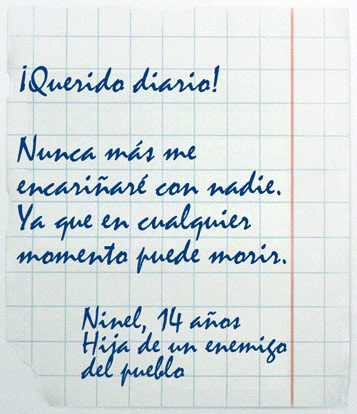 ¡Querido diario!
Nunca más me
encariñaré con nadie.
Ya que en cualquier
momento puede morir.
Ninel, 14 años
Hija de un enemigo
del pueblo